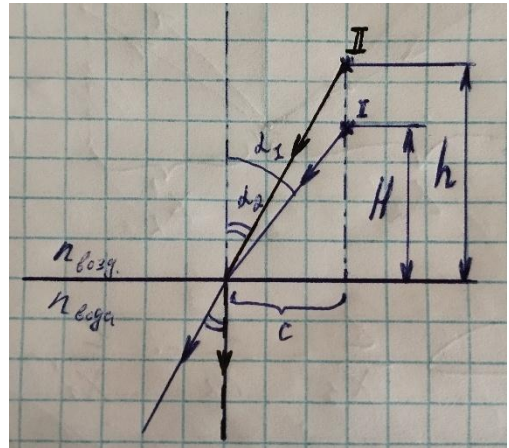 II
I
α₁
α₂
H
h
nвозд.
nвода
c